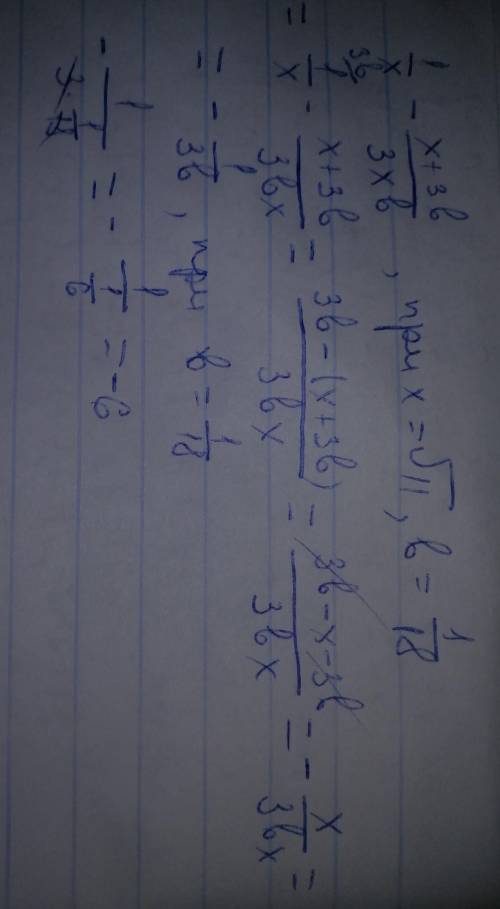 1/x - x+3b/3xb , при x = √11, b = 1/18
= 1/x - x+3b/3bx = 3b-(x+3b)/3bx = 3b-x-3b/3bx = - x/3bx =
= - 1/3b , при b = 1/18
- 1/(3·1/18) = - 1/(1/6) = -6